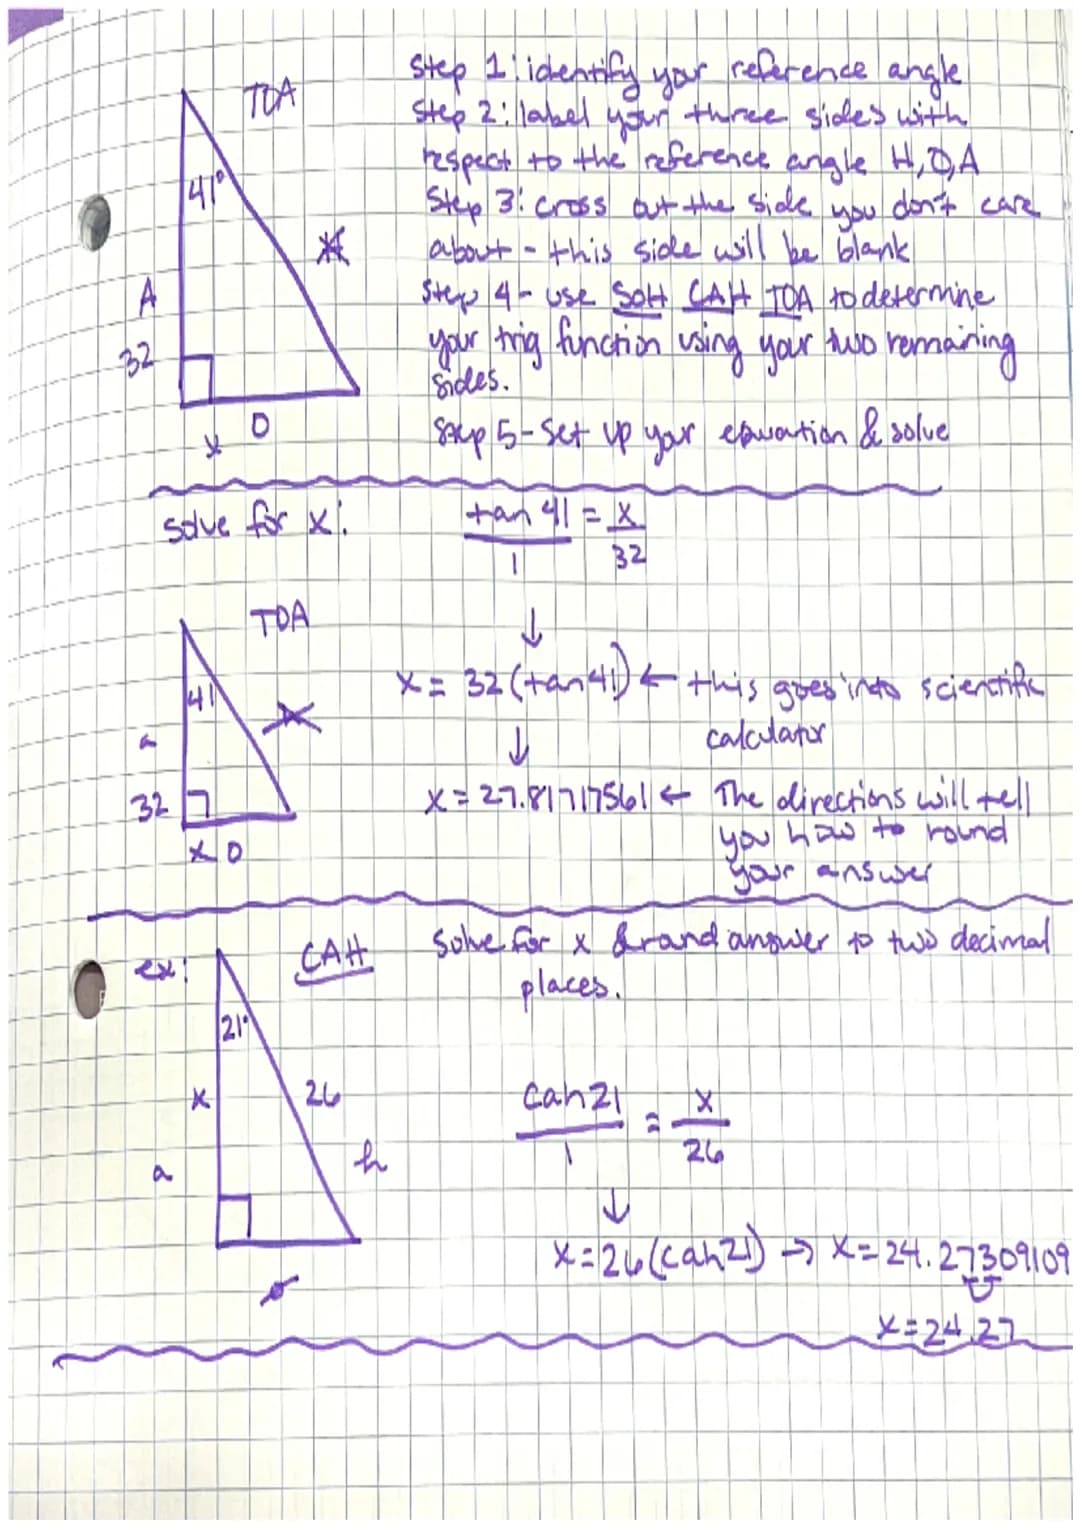 TOA
Step 1: identify your reference angle
Step 2: label your three sides with
respect to the reference angle H, O, A
Step 3: cross out the side you don't care
about - this side will be blank
Step 4 - use SOH CAH TOA to determine
your trig function using your two remaining
sides.
Step 5 - Set up your equation & solve
41°
H
A
32
x O
solve for x:
tan 41 = x
1 32
TOA
41
a
32
x O
x = 32 (tan 41) ← this goes into scientific
calculator
x = 27.81717561 ← The directions will tell
you how to round
your answer
ex:
CAH
Solve for x & rand answer to two decimal
places.
21°
x
26
a
h
o
cah21 = x
1 26
x = 26 (cah21) → x = 24.27309109
x = 24.27